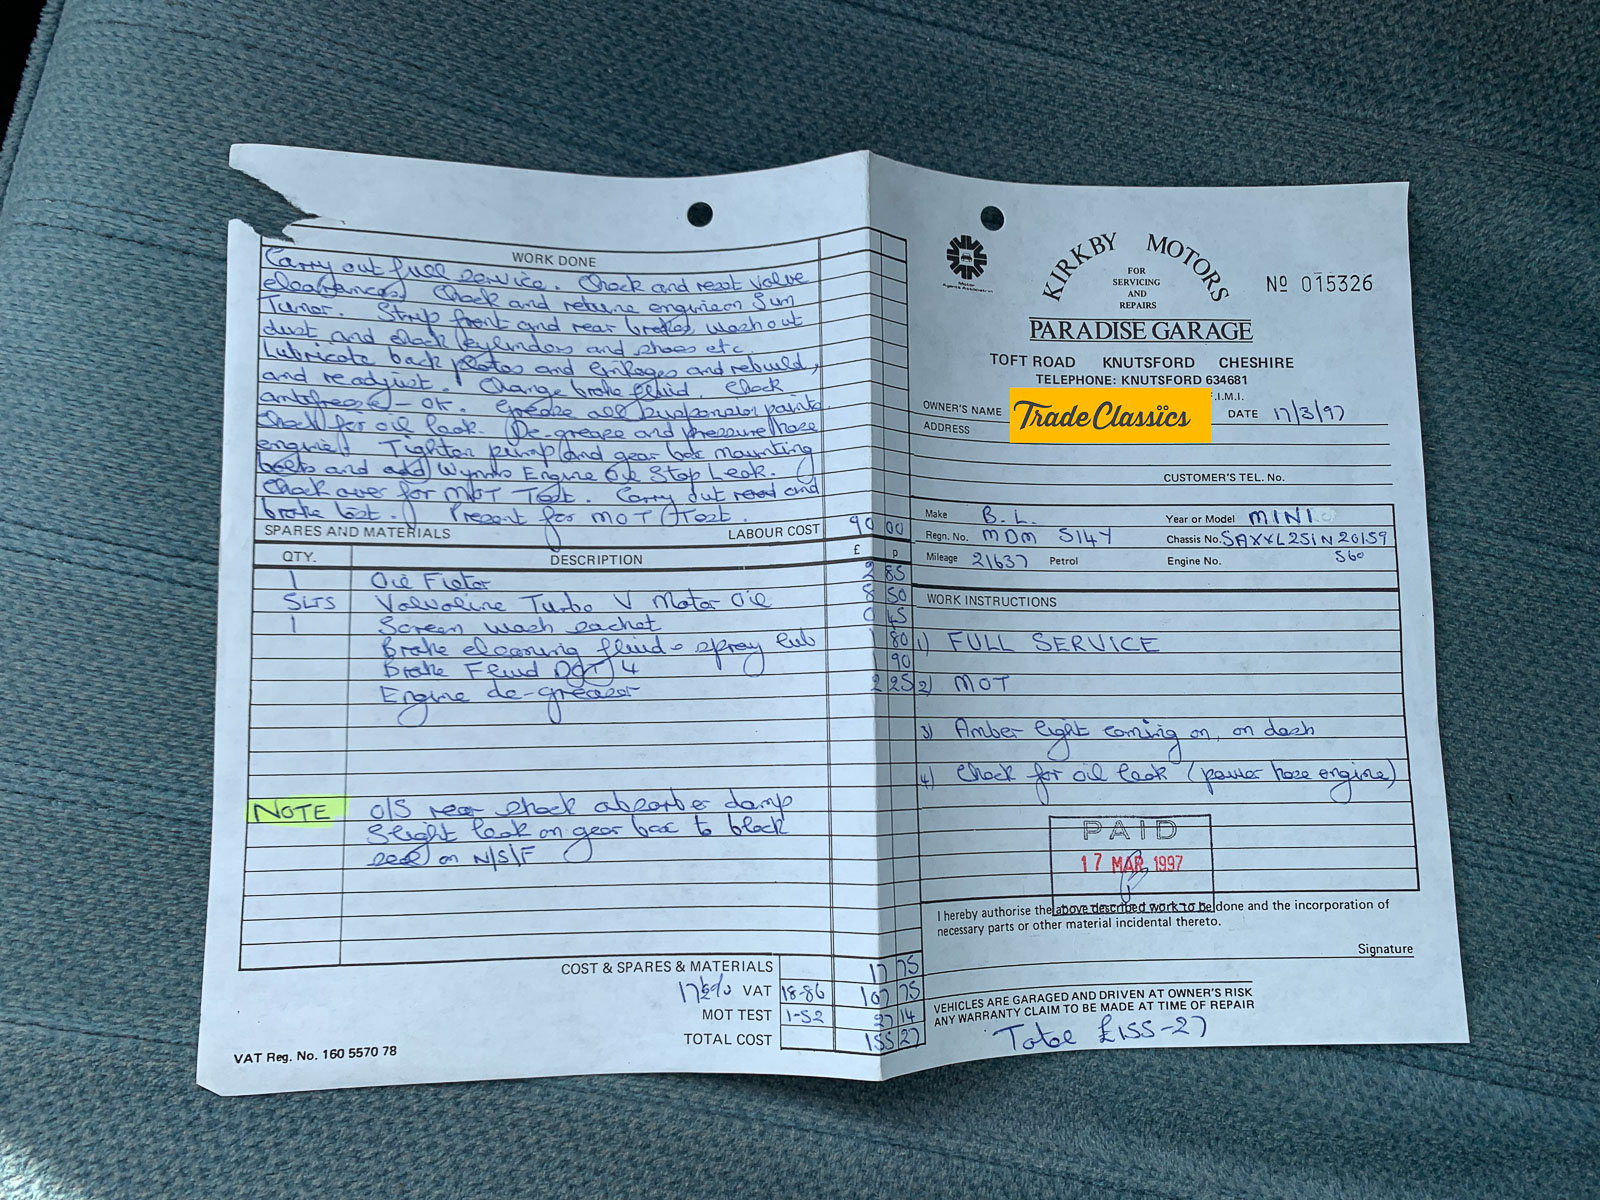 WORK DONE
Carry out full service. Check and reset valve
clearances. Check and retune engine on Sun
Tuner. Strip front and rear brakes, wash out
dust and check cylinders and shoes etc
Lubricate back plates and linkages and rebuild,
and readjust. Change brake fluid. Check
antifreeze - OK. Grease all suspension points.
Check for oil leak. De-grease and pressure hose
engine. Tighten pump and gear box mounting
bolts and add Wynns Engine Oil Stop Leak.
Check over for MOT Test. Carry out road and
brake test. Present for MOT Test.
SPARES AND MATERIALS LABOUR COST 90 00
QTY. DESCRIPTION £ p
1 Oil Filter 2 85
5LTS Valvoline Turbo V Motor Oil 8 50
1 Screen wash sachet 0 45
Brake cleaning fluid - spray lub 1 80
Brake Fluid DOT 4 1 90
Engine de-greaser 2 25
NOTE O/S rear shock absorber damp
Slight leak on gear box to block
seal on N/S/F
COST & SPARES & MATERIALS 17 75
17½% VAT 18-86 107 75
MOT TEST 1-52 27 14
TOTAL COST 155 27
VAT Reg. No. 160 5570 78
Motor
Agents Association
KIRKBY MOTORS
FOR
SERVICING
AND
REPAIRS
Nº 015326
PARADISE GARAGE
TOFT ROAD KNUTSFORD CHESHIRE
TELEPHONE: KNUTSFORD 634681
F.I.M.I.
OWNER'S NAME TradeClassics DATE 17/3/97
ADDRESS
CUSTOMER'S TEL. No.
Make B.L. Year or Model MINI
Regn. No. MDM 514Y Chassis No. SAXXL2S1N20159
Mileage 21637 Petrol Engine No. 560
WORK INSTRUCTIONS
1) FULL SERVICE
2) MOT
3) Amber light coming on, on dash
4) Check for oil leak (power hose engine)
PAID
17 MAR 1997
I hereby authorise the above described work to be done and the incorporation of
necessary parts or other material incidental thereto.
Signature
VEHICLES ARE GARAGED AND DRIVEN AT OWNER'S RISK
ANY WARRANTY CLAIM TO BE MADE AT TIME OF REPAIR
Total £155-27